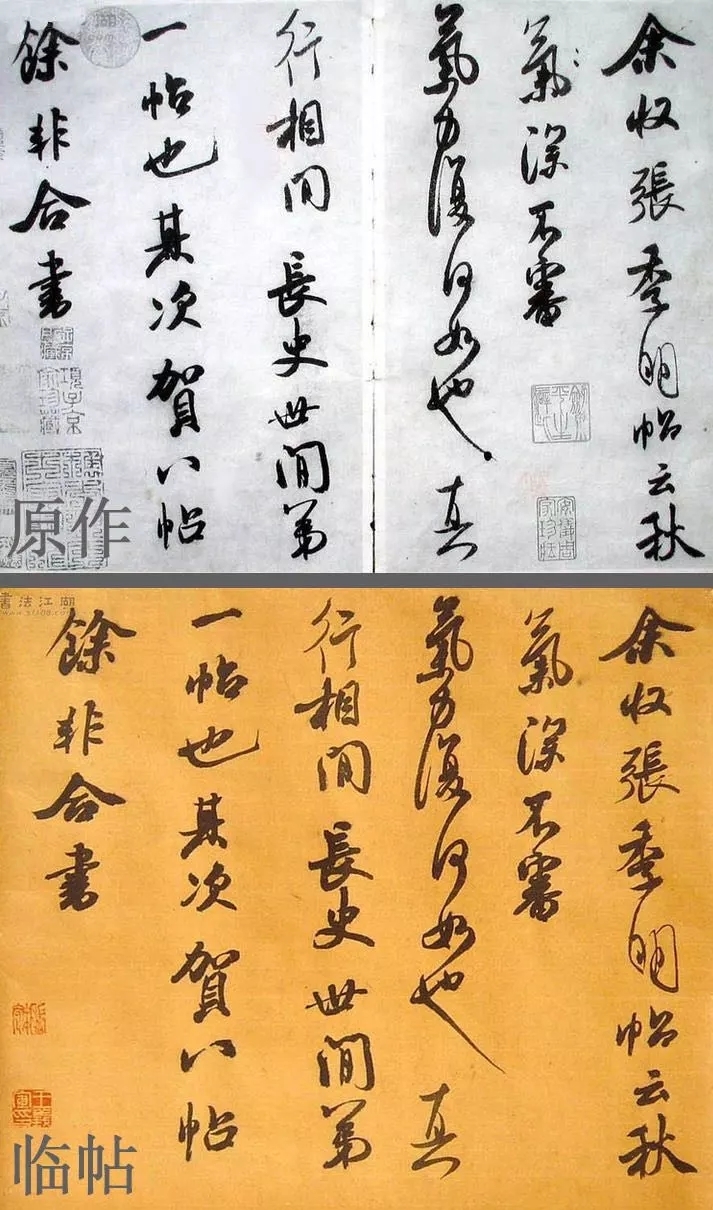 余收張季明帖云秋
氣深不審
氣力復何如也真
行相間長史世間第
一帖也其次賀八帖
餘非合書
項子京
家珍藏
原作
書法江湖
余收張季明帖云秋
氣深不審
氣力復何如也真
行相間長史世間第
一帖也其次賀八帖
餘非合書
临帖